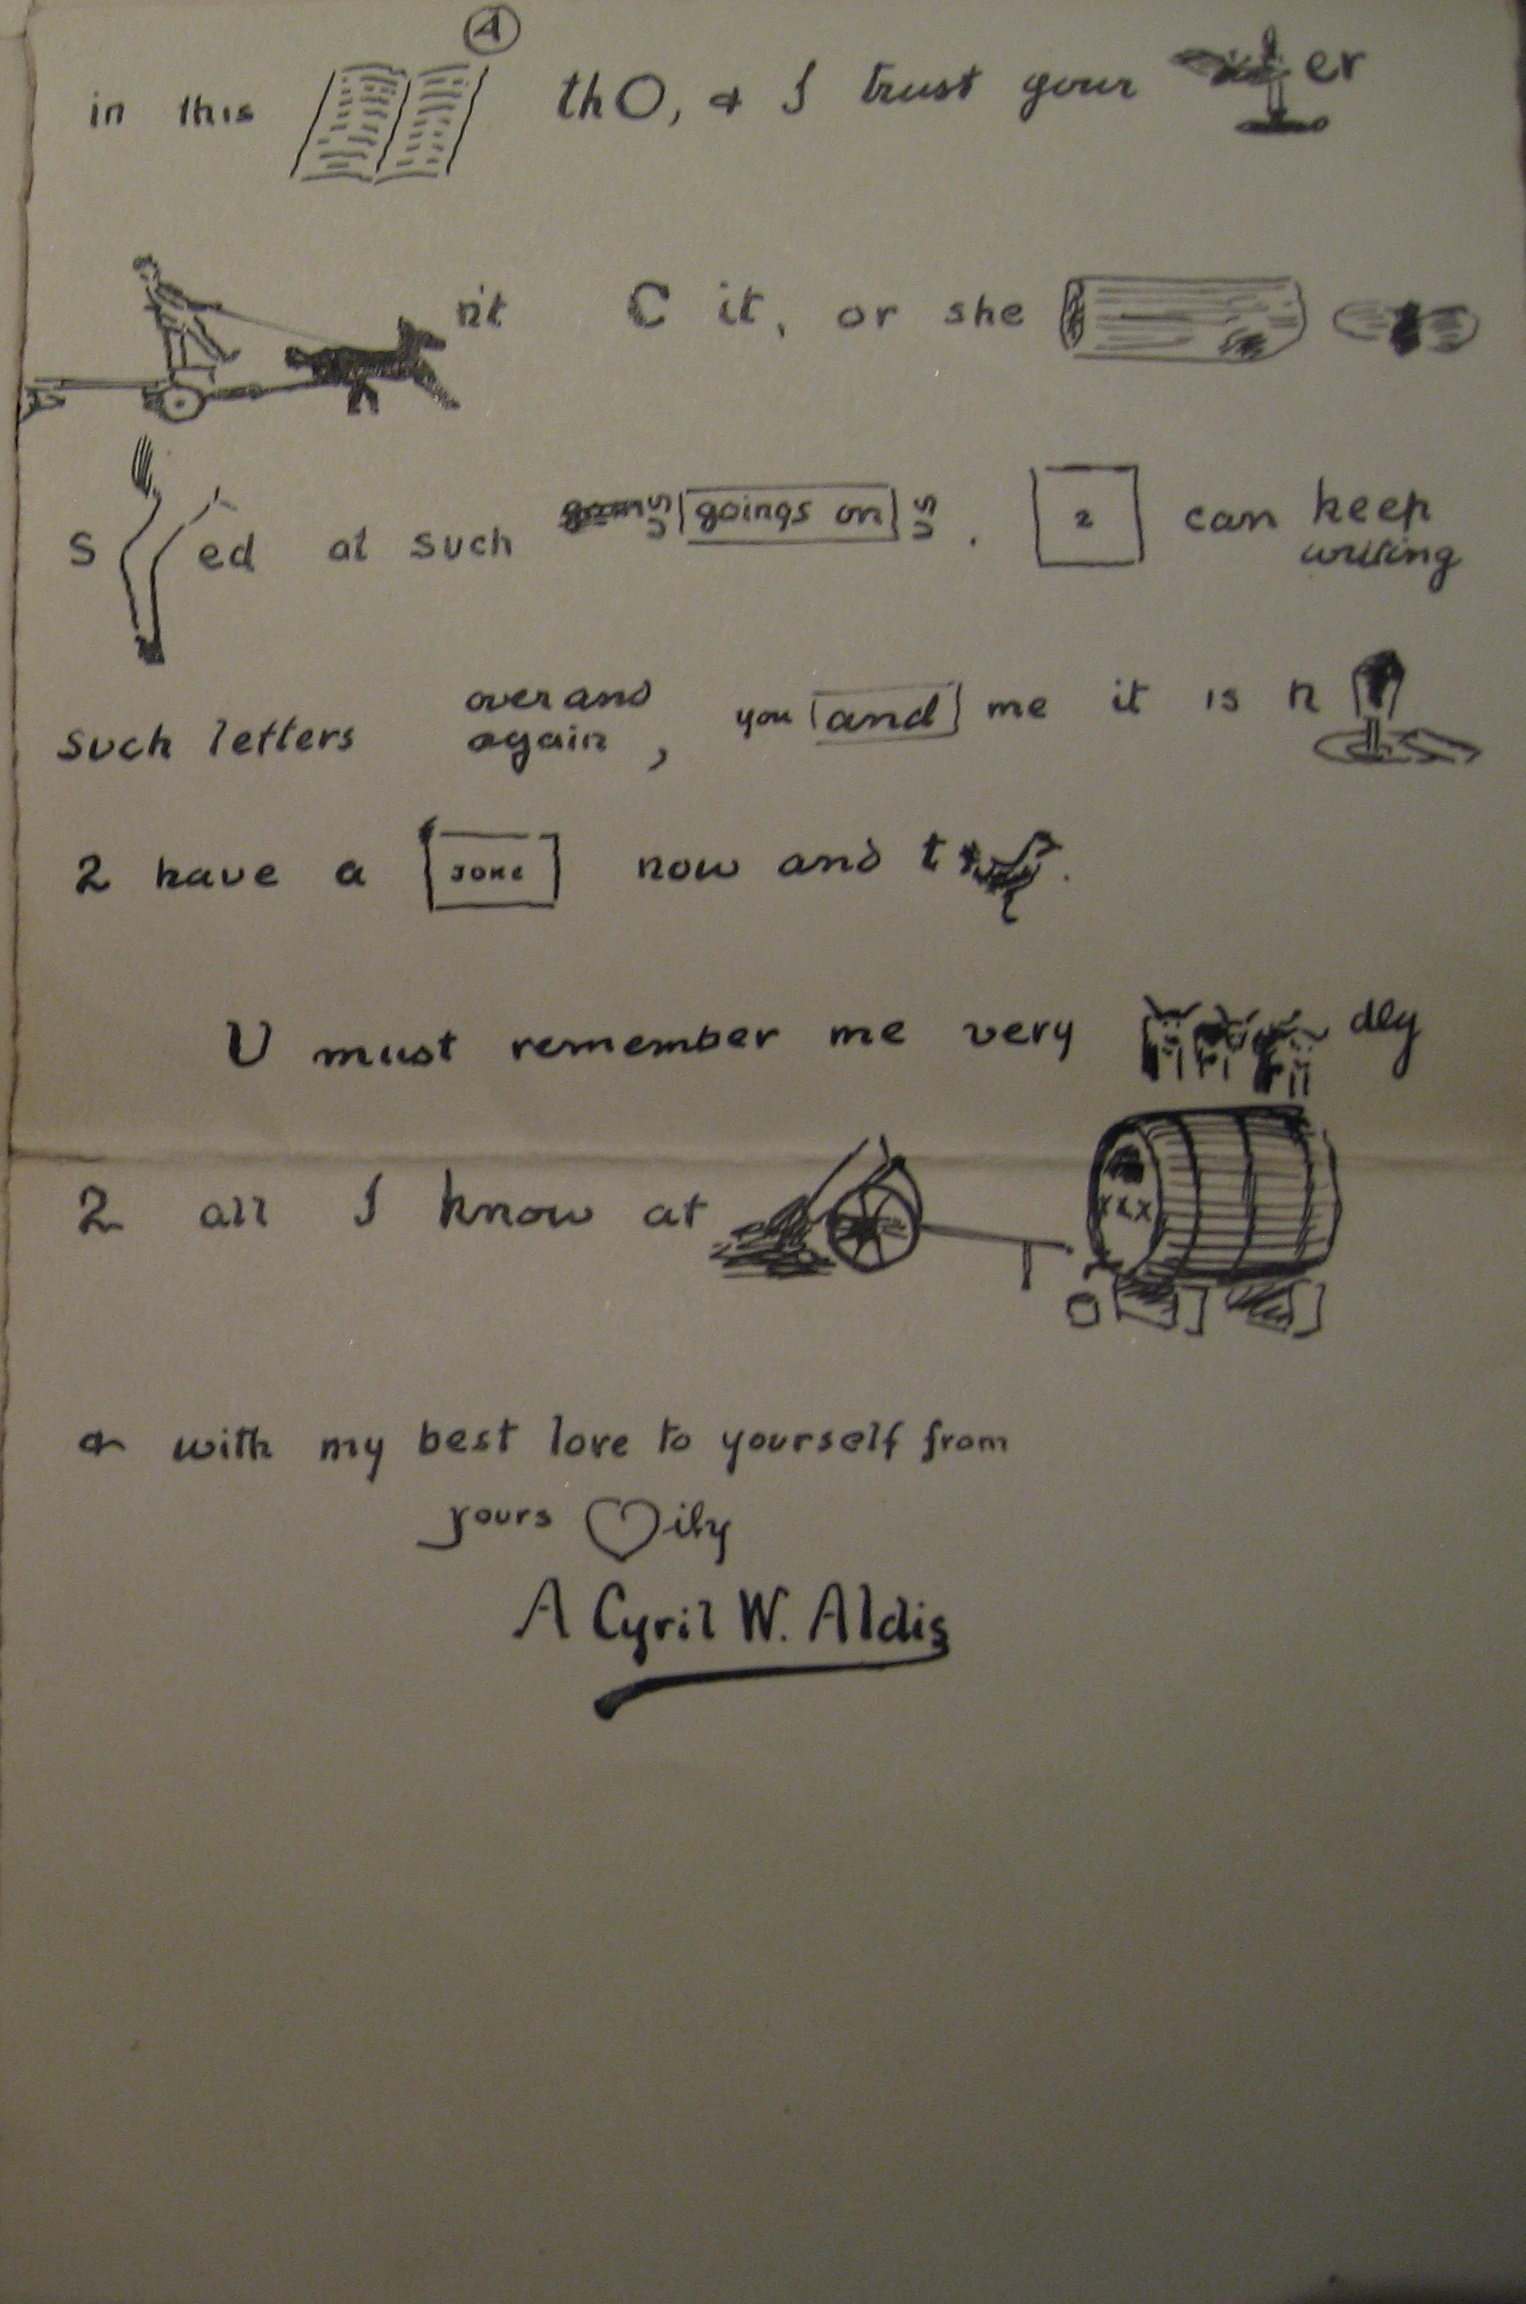 A
in this thO, & I trust your er
n't C it, or she
S ed at such us goings on us. 2 can keep
writing
such letters over and
again, you and me it is n
2 have a JOKE now and t
U must remember me very dly
2 all I know at
XXX
& with my best love to yourself from
yours ily
A Cyril W. Aldis